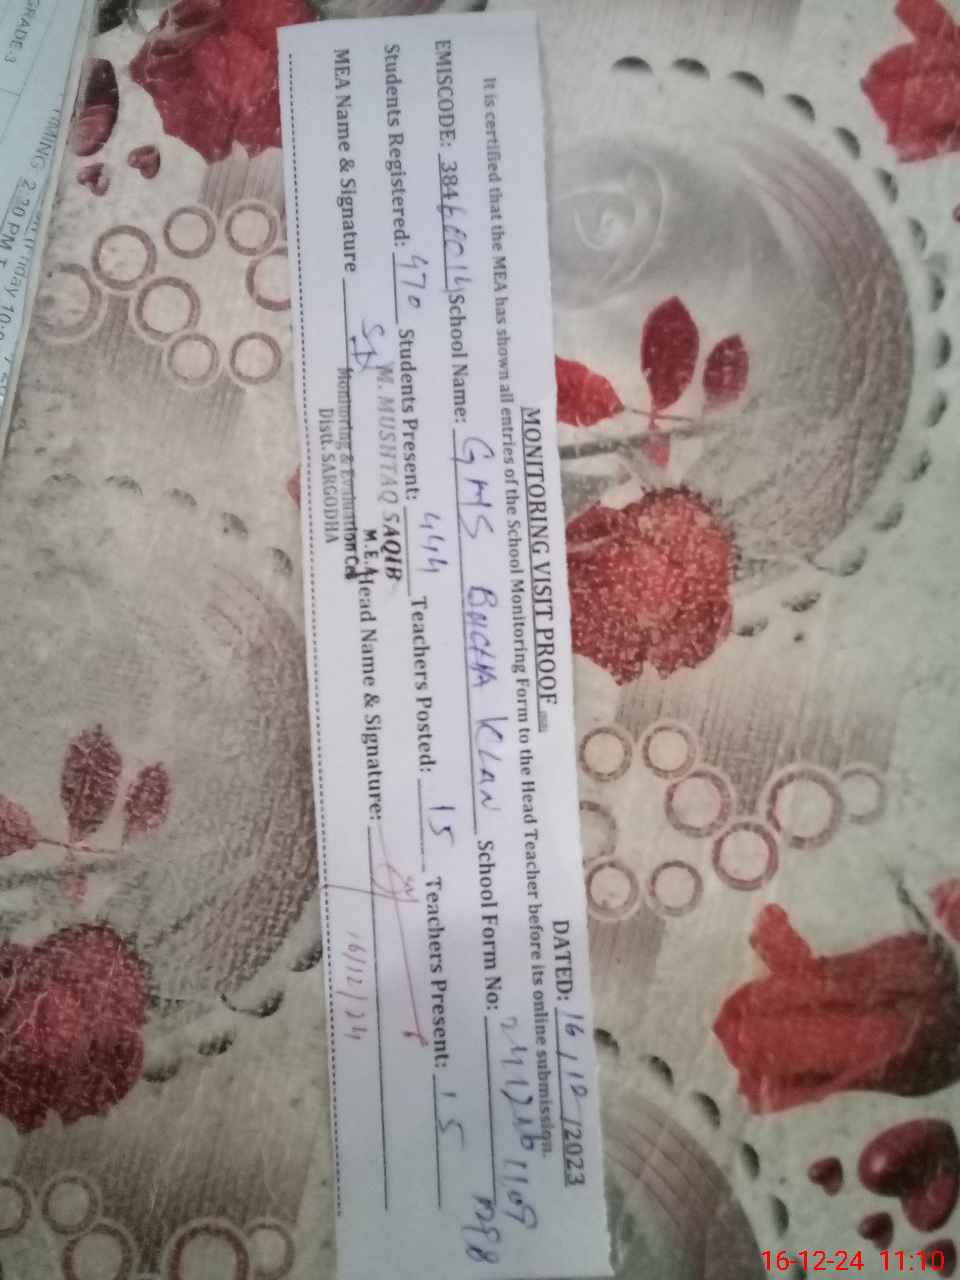 MONITORING VISIT PROOF
DATED: 16/12/2023
It is certified that the MEA has shown all entries of the School Monitoring Form to the Head Teacher before its online submission.
EMISCODE: School Name: GMS School Form No:
Students Registered: 470 Students Present: 444 Teachers Posted: 15 Teachers Present: 15
MEA Name & Signature Head Name & Signature:
M. MUSHTAQ SAQIB
M.E.A
Monitoring & Evaluation Cell
Distt. SARGODHA
16/12/24
GRADE:3
TIMING 2:30 PM
16-12-24 11:10